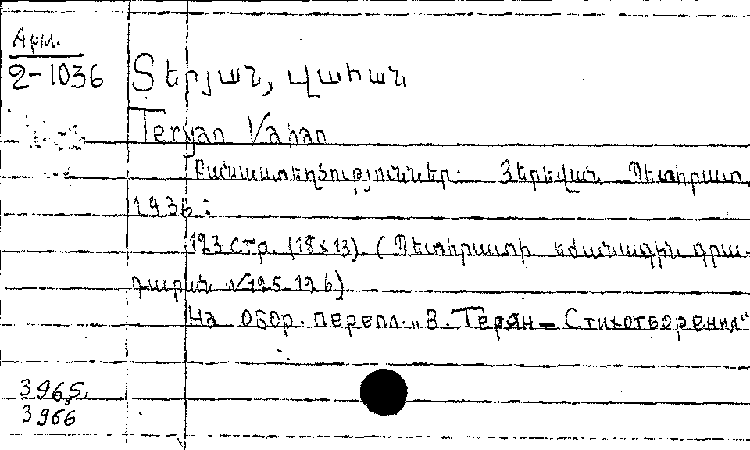 Арм.
2-1036
Տերյան, Վահան
Teryan Vahan
Բանաստեղծություններ. Յերեվան Պետհրատ
1936:
123 стр. (18x13). (Պետհրատի եժանագին գրա-
դարան №125-126)
На обор. перепл. „В. Терян – Стихотворения“
3965,
3966